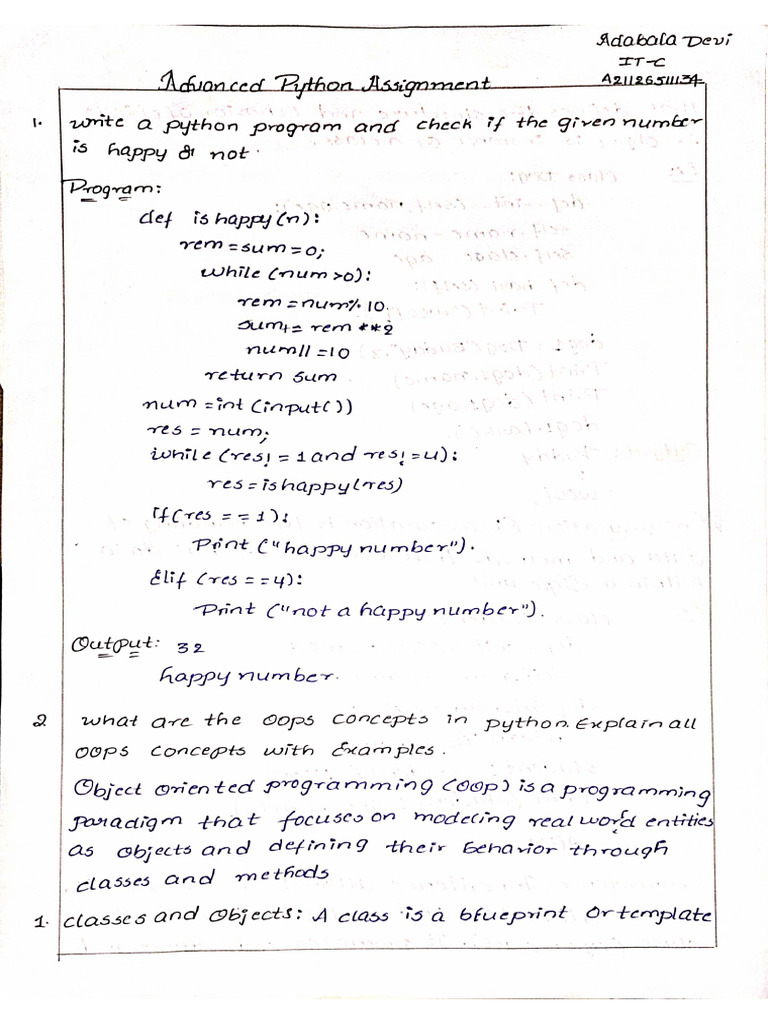 Adabala Devi
IT-C
A21126511134
Advanced Python Assignment
1. write a python program and check if the given number
is happy or not.
Program:
def ishappy(n):
rem=sum=0;
while(num>0):
rem=num%10.
sum+=rem**2
num//=10
return sum
num=int(input())
res=num;
while(res!=1 and res!=4):
res=ishappy(res)
if(res==1):
Print("happy number").
Elif(res==4):
Print("not a happy number").
Output: 32
happy number.
2 what are the OOPS concepts in python. Explain all
OOPS concepts with Examples.
Object oriented programming (OOP) is a programming
paradigm that focuses on modeling real word entities
as objects and defining their behavior through
classes and methods
1. Classes and Objects: A class is a blueprint or template